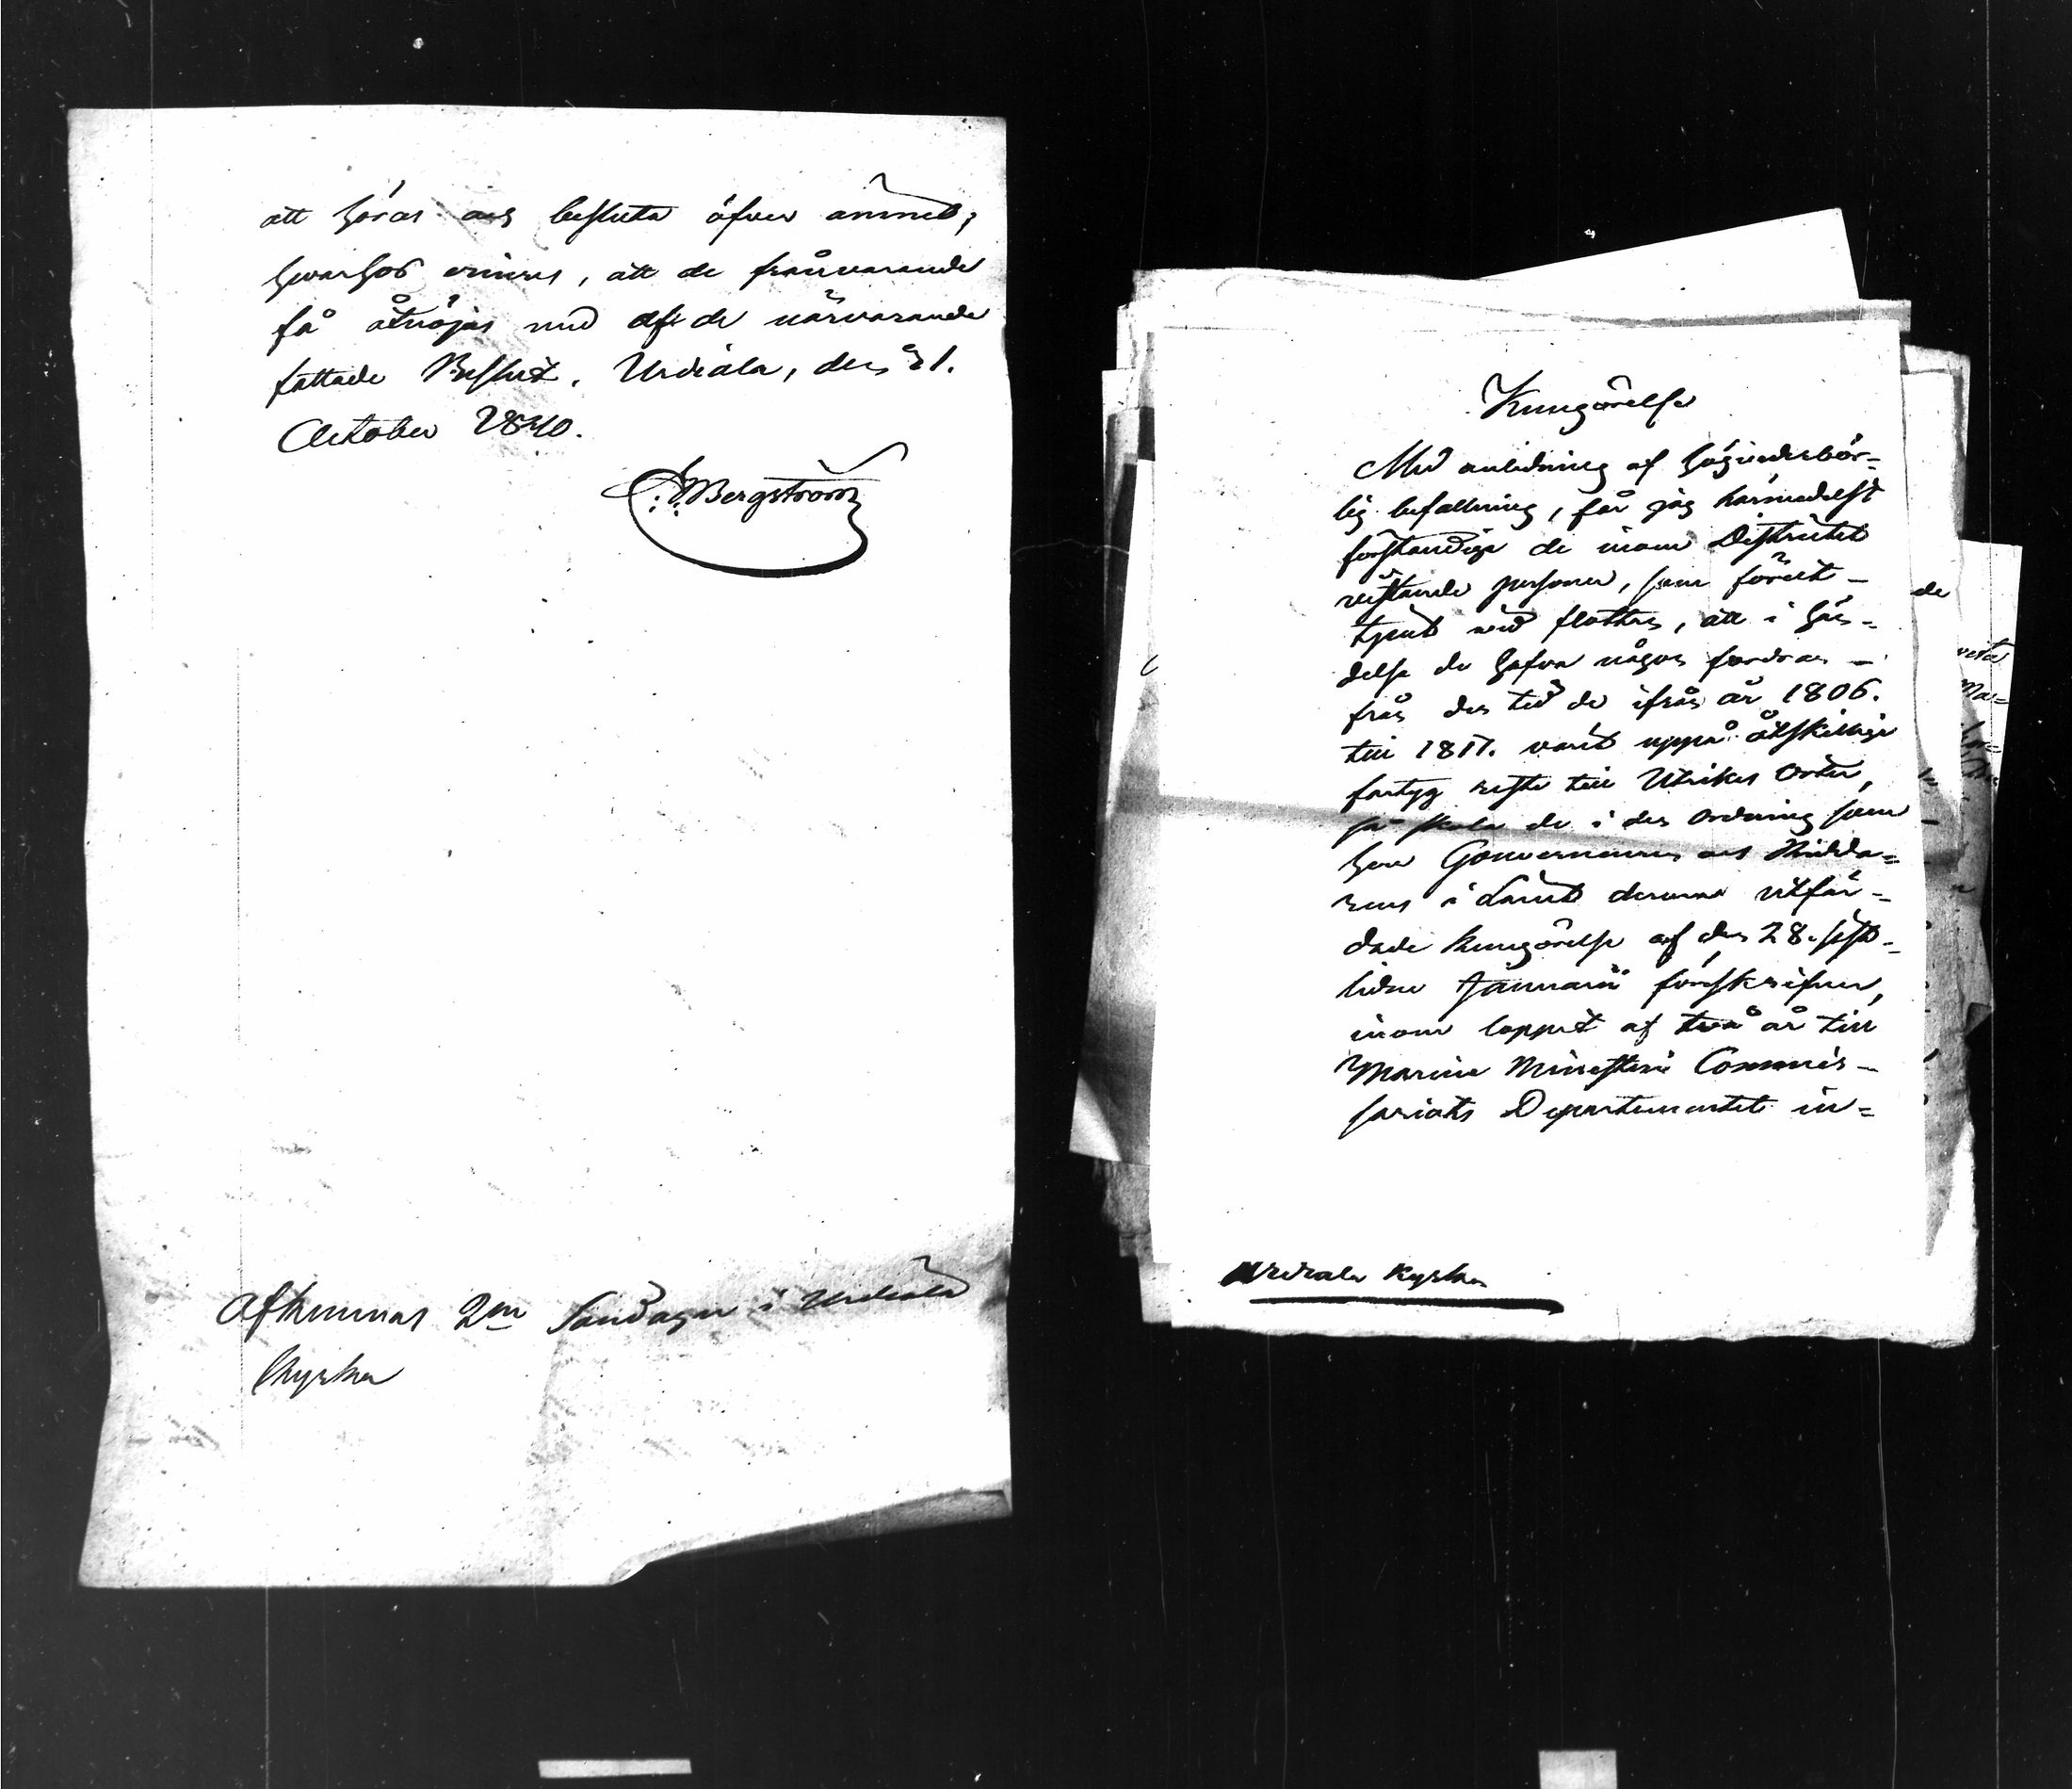 att höras och besluta öfver ämnet;
hvarhos erinras, att de frånvarande
få åtnöjas med af de närvarande
fattade Beslut. Urdiala, den 21.
October 1840.
Bergström
Afkunnas 2m Söndagen i Urdiala
Kyrka
Kungörelse
Med anledning af höguederbör-
lig befallning, får jag härmedelst
förständiga de inom Districtet
vistande personer, som förut
tjent vid flottan, att i hän-
delse de hafva någon fordran
från den tid de ifrån år 1806.
till 1817. varit uppå åtskillige
fartyg reste till Utrikes orter,
så skola de i den ordning som
herr Gouverneuren och Ridda-
rens i Länet derom utfär-
dade kungörelse af den 28. sist-
lidne Januarii förskrifver,
inom loppet af två år till
Marine Ministerii Commis-
sariats Departementet in-
Urdiala Kyrka
de